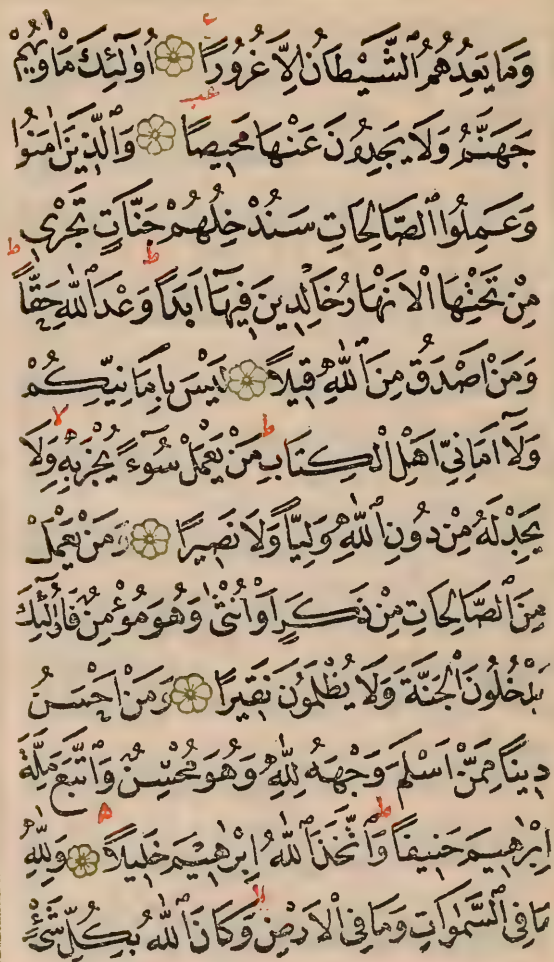 وَمَا يَعِدُهُمُ الشَّيْطَانُ اِلَّا غُرُورًا ۝ اُولٰٓئِكَ مَاْوٰيهُمْ
جَهَنَّمُ وَلَا يَجِدُونَ عَنْهَا مَحِيصًا ۝ وَالَّذِينَ اٰمَنُوا
وَعَمِلُوا الصَّالِحَاتِ سَنُدْخِلُهُمْ جَنَّاتٍ تَجْرِى
مِنْ تَحْتِهَا الْاَنْهَارُ خَالِدِينَ فِيهَآ اَبَدًا وَعْدَ اللّٰهِ حَقًّا
وَمَنْ اَصْدَقُ مِنَ اللّٰهِ قِيلًا ۝ لَيْسَ بِاَمَانِيِّكُمْ
وَلَآ اَمَانِىِّ اَهْلِ الْكِتَابِ مَنْ يَعْمَلْ سُوٓءً يُجْزَ بِهٖ وَلَا
يَجِدْ لَهُ مِنْ دُونِ اللّٰهِ وَلِيًّا وَلَا نَصِيرًا ۝ وَمَنْ يَعْمَلْ
مِنَ الصَّالِحَاتِ مِنْ ذَكَرٍ اَوْ اُنْثٰى وَهُوَ مُؤْمِنٌ فَاُولٰٓئِكَ
يَدْخُلُونَ الْجَنَّةَ وَلَا يُظْلَمُونَ نَقِيرًا ۝ وَمَنْ اَحْسَنُ
دِينًا مِمَّنْ اَسْلَمَ وَجْهَهُ لِلّٰهِ وَهُوَ مُحْسِنٌ وَاتَّبَعَ مِلَّةَ
اِبْرٰهِيمَ حَنِيفًا وَاتَّخَذَ اللّٰهُ اِبْرٰهِيمَ خَلِيلًا ۝ وَلِلّٰهِ
مَا فِى السَّمٰوَاتِ وَمَا فِى الْاَرْضِ وَكَانَ اللّٰهُ بِكُلِّ شَىْءٍ